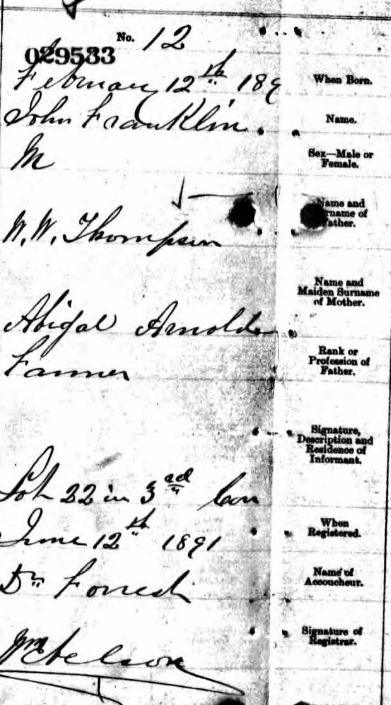 No. 12
029533
February 12th 189
When Born.
John Franklin.
Name.
M
Sex—Male or
Female.
Name and
Surname of
Father.
W. W. Thompson
Name and
Maiden Surname
of Mother.
Abigal Arnolde
Rank or
Profession of
Father.
Farmer
Signature,
Description and
Residence of
Informant.
Lot 22 in 3rd Con
When
Registered.
June 12th 1891
Name of
Accoucheur.
Dr. Forrest
Signature of
Registrar.